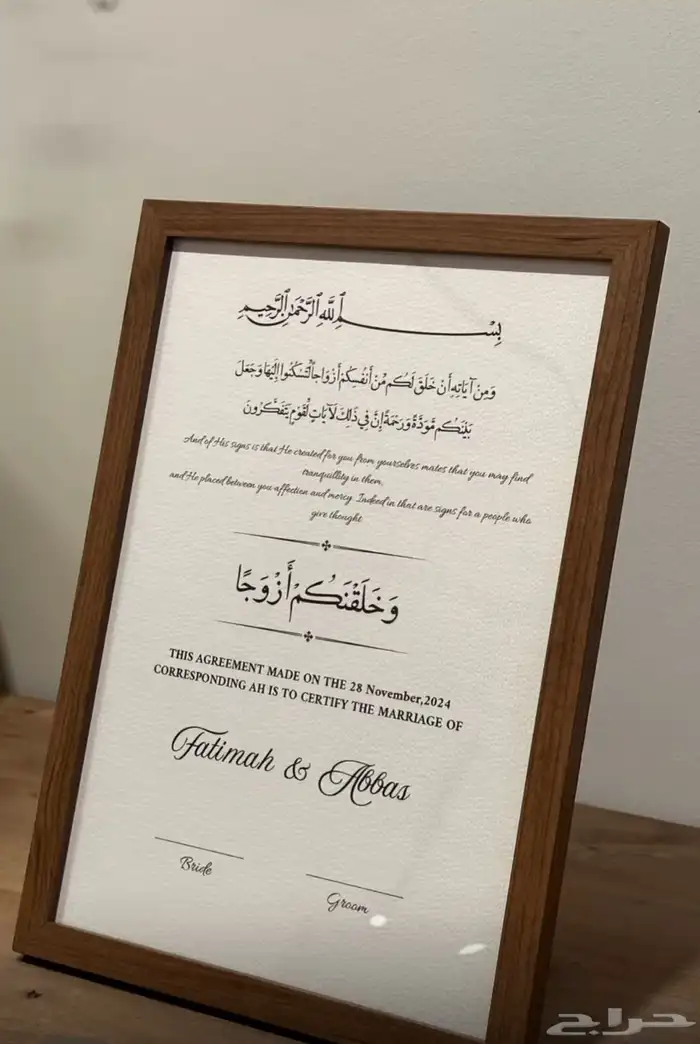 بِسْــــــمِ ٱللَّهِ ٱلرَّحْمَٰنِ ٱلرَّحِيمِ
وَمِنْ آيَاتِهِ أَنْ خَلَقَ لَكُم مِّنْ أَنفُسِكُمْ أَزْوَاجاً لِّتَسْكُنُوا إِلَيْهَا وَجَعَلَ
بَيْنَكُم مَّوَدَّةً وَرَحْمَةً إِنَّ فِي ذَلِكَ لَآيَاتٍ لِّقَوْمٍ يَتَفَكَّرُونَ
And of His signs is that He created for you from yourselves mates that you may find
tranquillity in them,
and He placed between you affection and mercy. Indeed in that are signs for a people who
give thought
وَخَلَقْنَكُمْ أَزْوَجًا
THIS AGREEMENT MADE ON THE 28 November,2024
CORRESPONDING AH IS TO CERTIFY THE MARRIAGE OF
Fatimah & Abbas
Bride
Groom
حراج